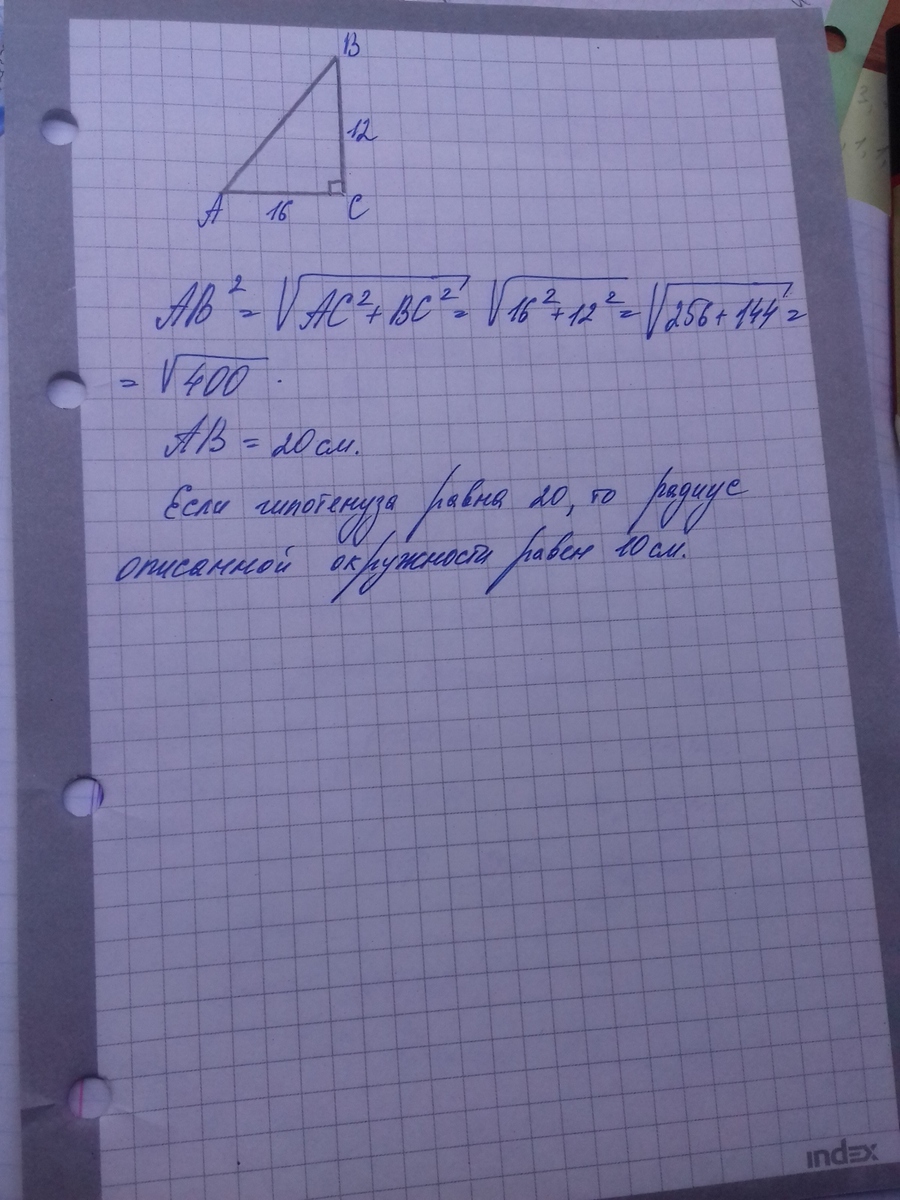 B
12
A 16 C
AB² = √AC² + BC² = √16² + 12² = √256 + 144 =
= √400 .
AB = 20 см.
Если гипотенуза равна 20, то радиус
описанной окружности равен 10 см.
index